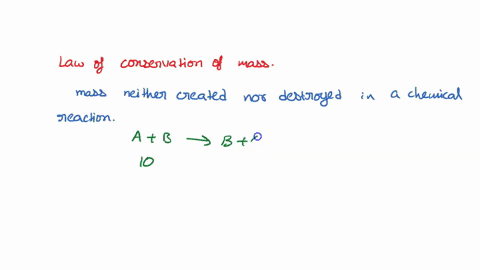 Law of conservation of mass.
mass neither created nor destroyed in a chemical
reaction.
A + B → B +
10